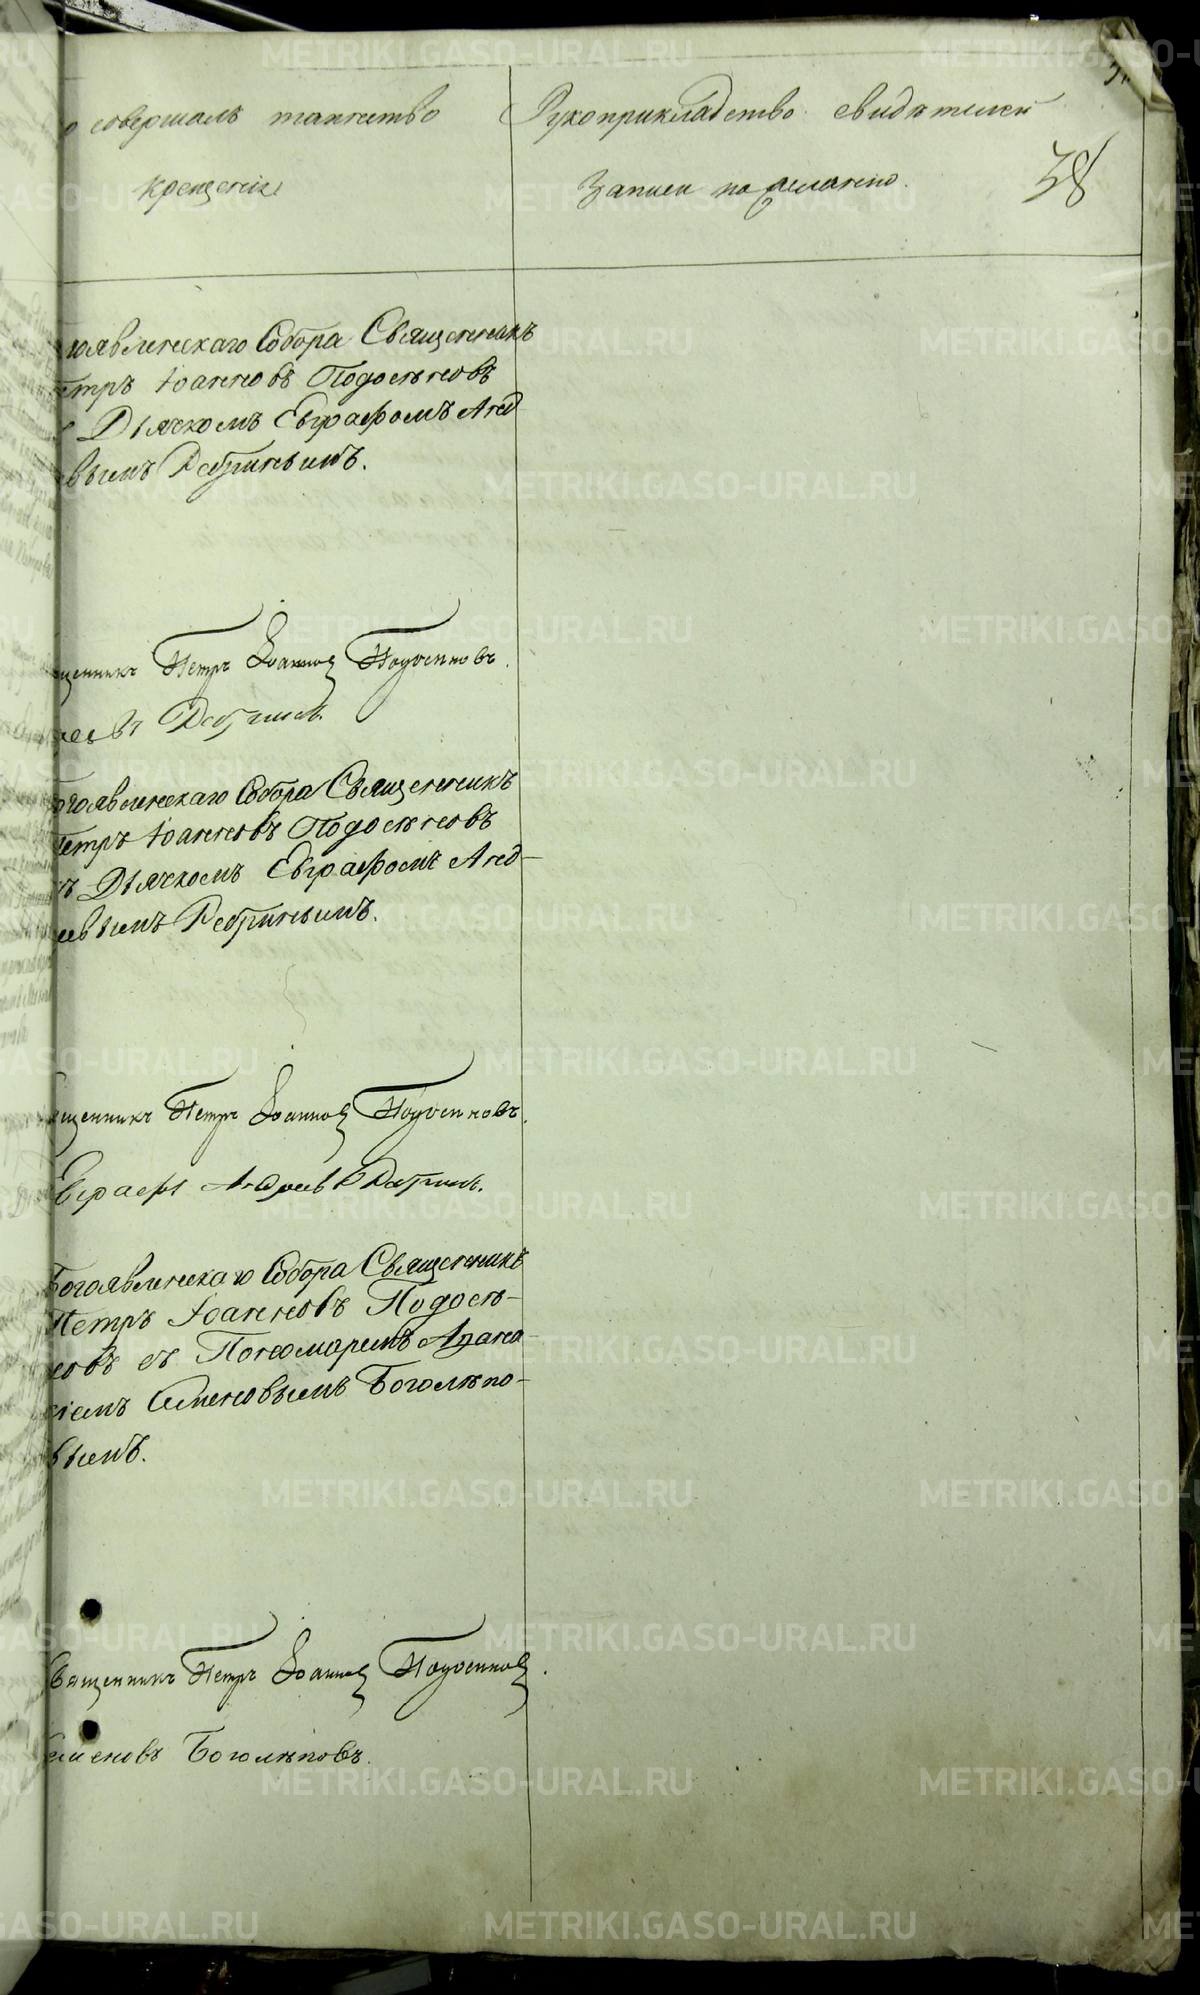 о совершалъ таинство
крещенія
Рукоприкладство свидѣтелей
записи по желанію.
38
гоявленскаго Собора Священникъ
етръ Іоанновъ Подосеновъ
съ Дьячкомъ Евграфомъ Анд
евымъ Ребринымъ.
щенникъ Петръ Іоанновъ Подосеновъ.
реевъ Ребринъ.
огоявленскаго Собора Священникъ
Петръ Іоанновъ Подосеновъ
съ Дьячкомъ Евграфомъ Анд-
еевымъ Ребринымъ.
ященникъ Петръ Іоанновъ Подосеновъ.
Евграфъ Андреевъ Ребринъ.
Богоявленскаго Собора Священникъ
Петръ Іоанновъ Подосе-
новъ съ Пономаремъ Афана-
сіемъ Семеновымъ Боголѣпо-
вымъ.
Священникъ Петръ Іоанновъ Подосеновъ.
Семеновъ Боголѣповъ.
METRIKI.GASO-URAL.RU